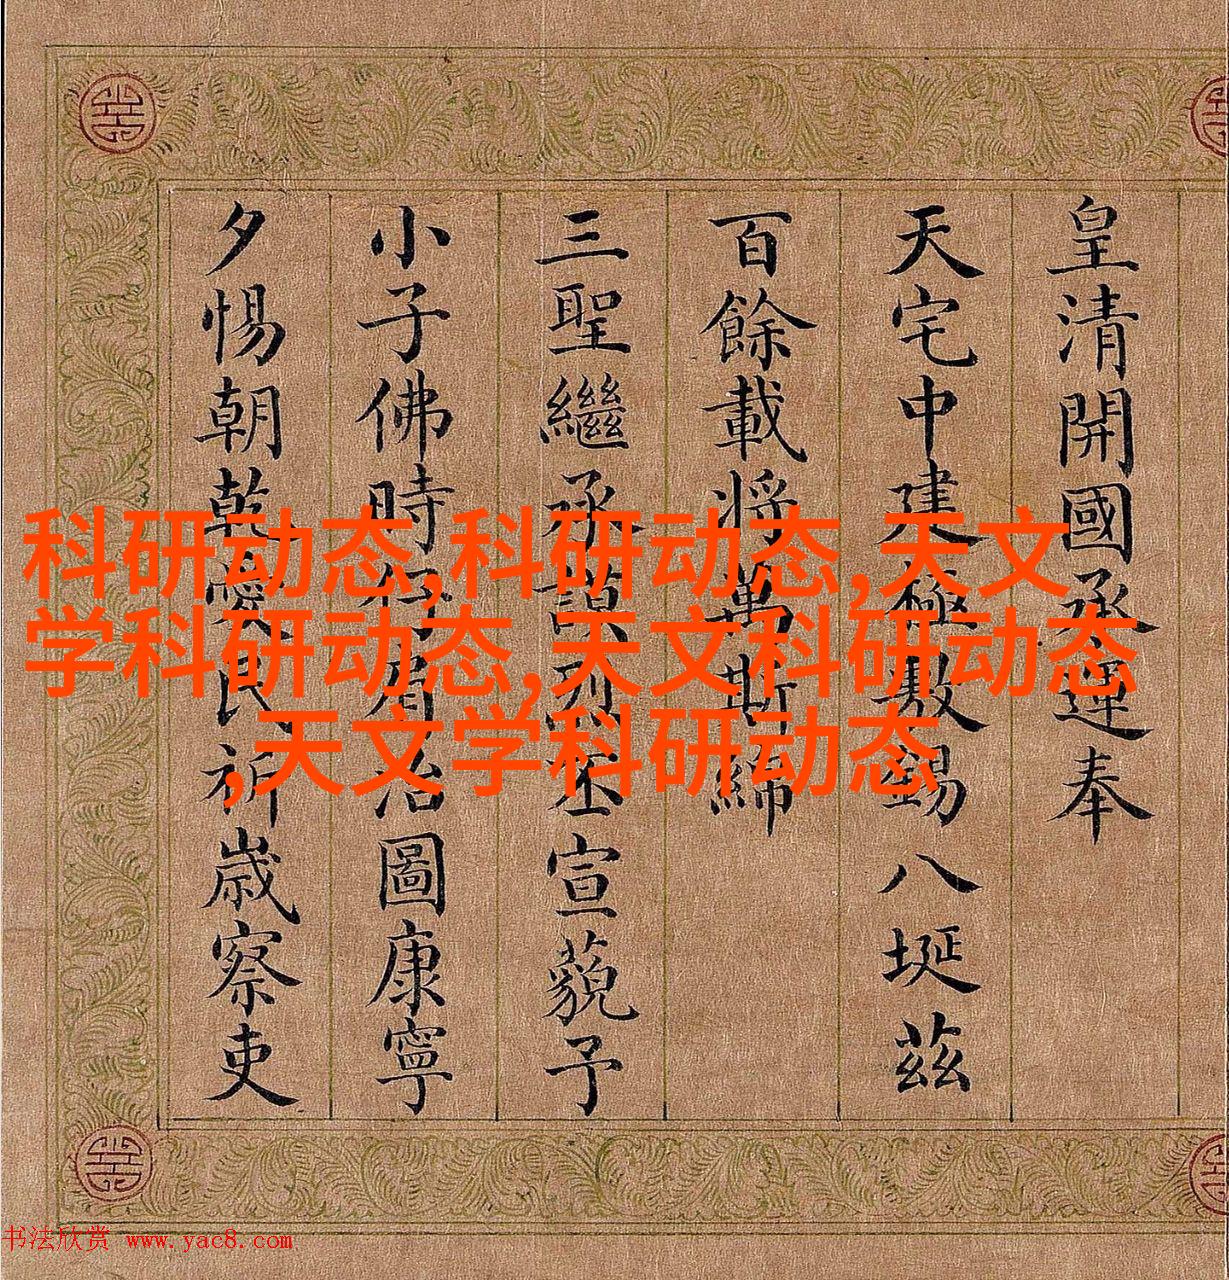 皇清開國承運奉
天宅中建極敷錫八埏茲
百餘載將萬斯綿
三聖繼承謨烈丕宣藐予
小子佛時仔肩治圖康寧
夕惕朝乾愛民祈歲察吏
科研动态,科研动态,天文
学科研动态,天文科研动态
,天文学科研动态
书法欣赏 www.yac8.com